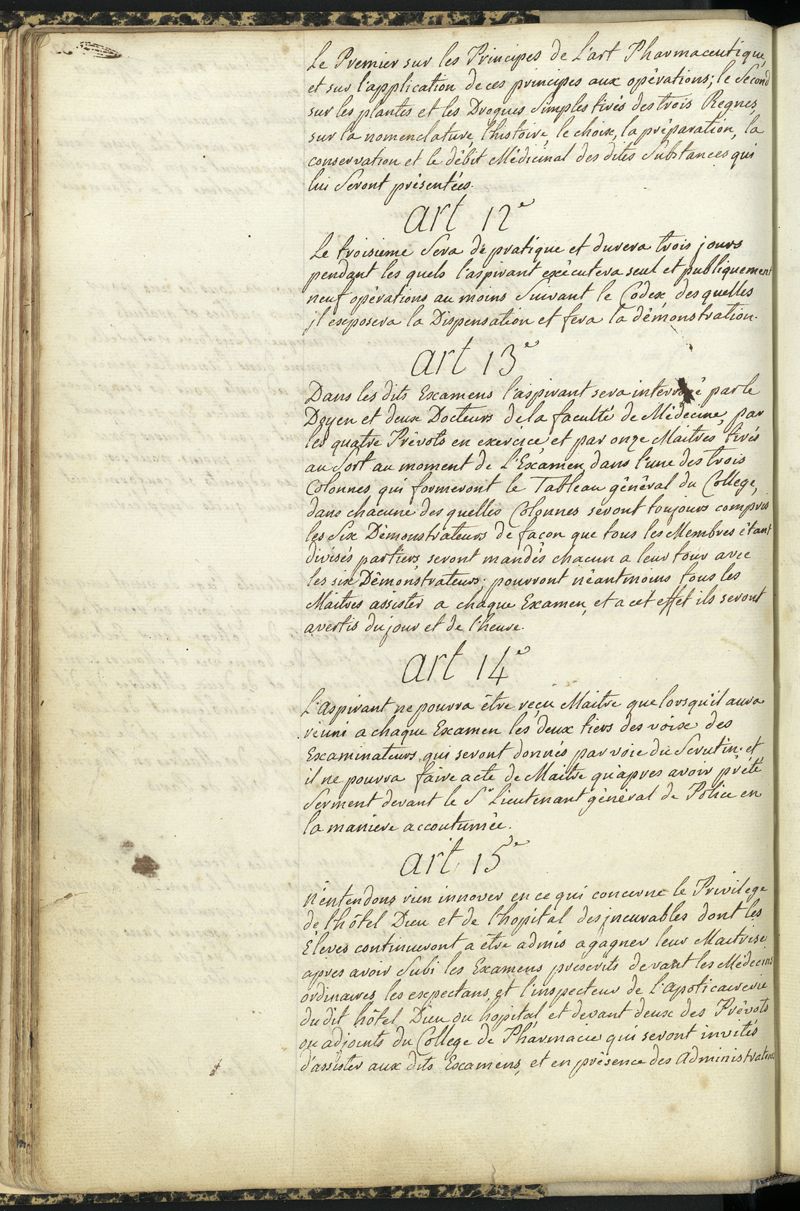 Le Premier sur les Principes de L'art Pharmaceutique,
et sur l'application de ces principes aux opérations; le Second
sur les plantes et les Drogues Simples tirés des trois Regnes,
sur la nomenclature, l'histoire, le choix, la préparation, la
conservation et le débit Médicinal des dites Substances qui
lui Seront présentées.
art 12e
Le troisieme Sera de pratique et durera trois jours
pendant les quels l'aspirant exécutera seul et publiquement
neuf opérations au moins Suivant le Codex, des quelles
il exposera la Dispensation et fera la démonstration.
art 13e
Dans les dits Examens l'aspirant sera interrogé par le
Doyen et deux Docteurs de la faculté de Médecine, par
les quatre Prévots en exercice et par onze Maitres tirés
au Sort au moment de L'Examen, dans l'une des trois
Colonnes qui formeront le Tableau général du College,
dans chacune des quelles Colonnes seront toujours compris
les Six Démonstrateurs de façon que tous les Membres étant
divisés par tiers, seront mandés chacun a leur tour avec
les six Démonstrateurs; pourront néantmoins tous les
Maitres assister a chaque Examen, et a cet effet ils seront
avertis du jour et de l'heure.
art 14e
L'Aspirant ne pourra être reçu Maitre que lorsqu'il aura
réuni a chaque Examen les deux tiers des voix des
Examinateurs qui seront donnés par voie du Scrutin; et
il ne pourra faire acte de Maitre qu'apres avoir prêté
Serment devant le Sr Lieutenant général de Police en
la maniere accoutumée.
art 15e
N'entendons rien innover en ce qui concerne le Privilege
de l'hôtel Dieu et de l'hopital des incurables dont les
Éleves continueront a être admis a gagner leur Maitrise
apres avoir Subi les Examens prescrits devant les Médecins
ordinaires, les expectans, et l'inspecteur de l'Apoticairerie
du dit hôtel Dieu ou hopital et devant deux des Prévots
ou adjoints du College de Pharmacie qui seront invités
d'assister aux dits Examens, et en présence des Administrateurs